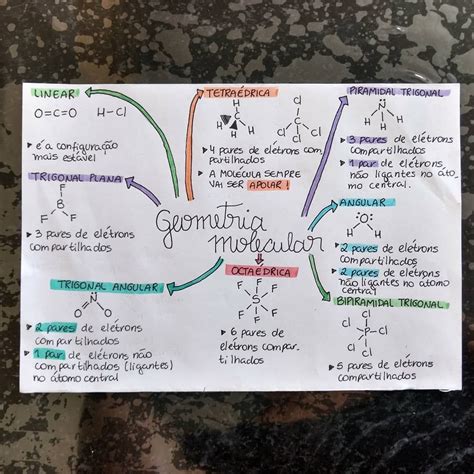 Geometria
molecular
LINEAR
O=C=O H-Cl
▸ é a configuração
mais estável
TETRAÉDRICA
H
C
H H
H
Cl
Cl C Cl
Cl
▸ 4 pares de elétrons com
partilhados
▸ A MOLÉCULA SEMPRE
VAI SER APOLAR!
PIRAMIDAL TRIGONAL
N
H H
H
▸ 3 pares de elétrons
compartilhados
▸ 1 par de elétrons
não ligantes no áto
mo central.
TRIGONAL PLANA
F
B
F F
▸ 3 pares de elétrons
compartilhados
ANGULAR
O
H H
▸ 2 pares de elétrons
compartilhados
▸ 2 pares de elétrons
não ligantes no átomo
central
TRIGONAL ANGULAR
N
O O
▸ 2 pares de elétrons
compartilhados
▸ 1 par de elétrons não
compartilhados (ligantes)
no átomo central
OCTAÉDRICA
F
F F
S
F F
F
▸ 6 pares de
elétrons compar
tilhados
BIPIRAMIDAL TRIGONAL
Cl
Cl
P-Cl
Cl
Cl
▸ 5 pares de elétrons
compartilhados